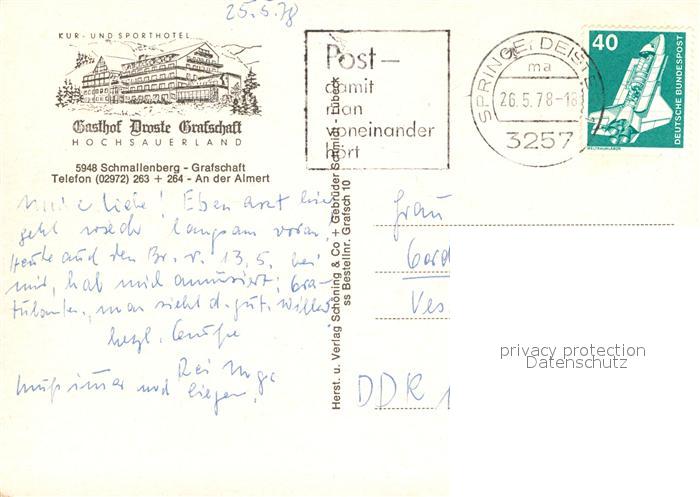 25.5.78
KUR- UND SPORTHOTEL
Gasthof Droste Grafschaft
HOCHSAUERLAND
5948 Schmallenberg - Grafschaft
Telefon (02972) 263 + 264 - An der Almert
Post-
damit
man
voneinander
hört
SPRINGE, DEIST
ma
26.5.78-18
3257
40
DEUTSCHE BUNDESPOST
WELTRAUMLABOR
Meine Liebe! Eben
geht wieder langsam voran.
Heute auf den Br. v. 13.5. bei
mir, hab mich amüsiert;
man sieht d. gut. Willen!
herzl. Grüße
muß immer noch liegen.
Herst. u. Verlag Schöning & Co + Gebrüder Schmidt · Lübeck
ss Bestellnr. Grafsch 10
Frau
Gerd
Ves
DDR 1
privacy protection
Datenschutz